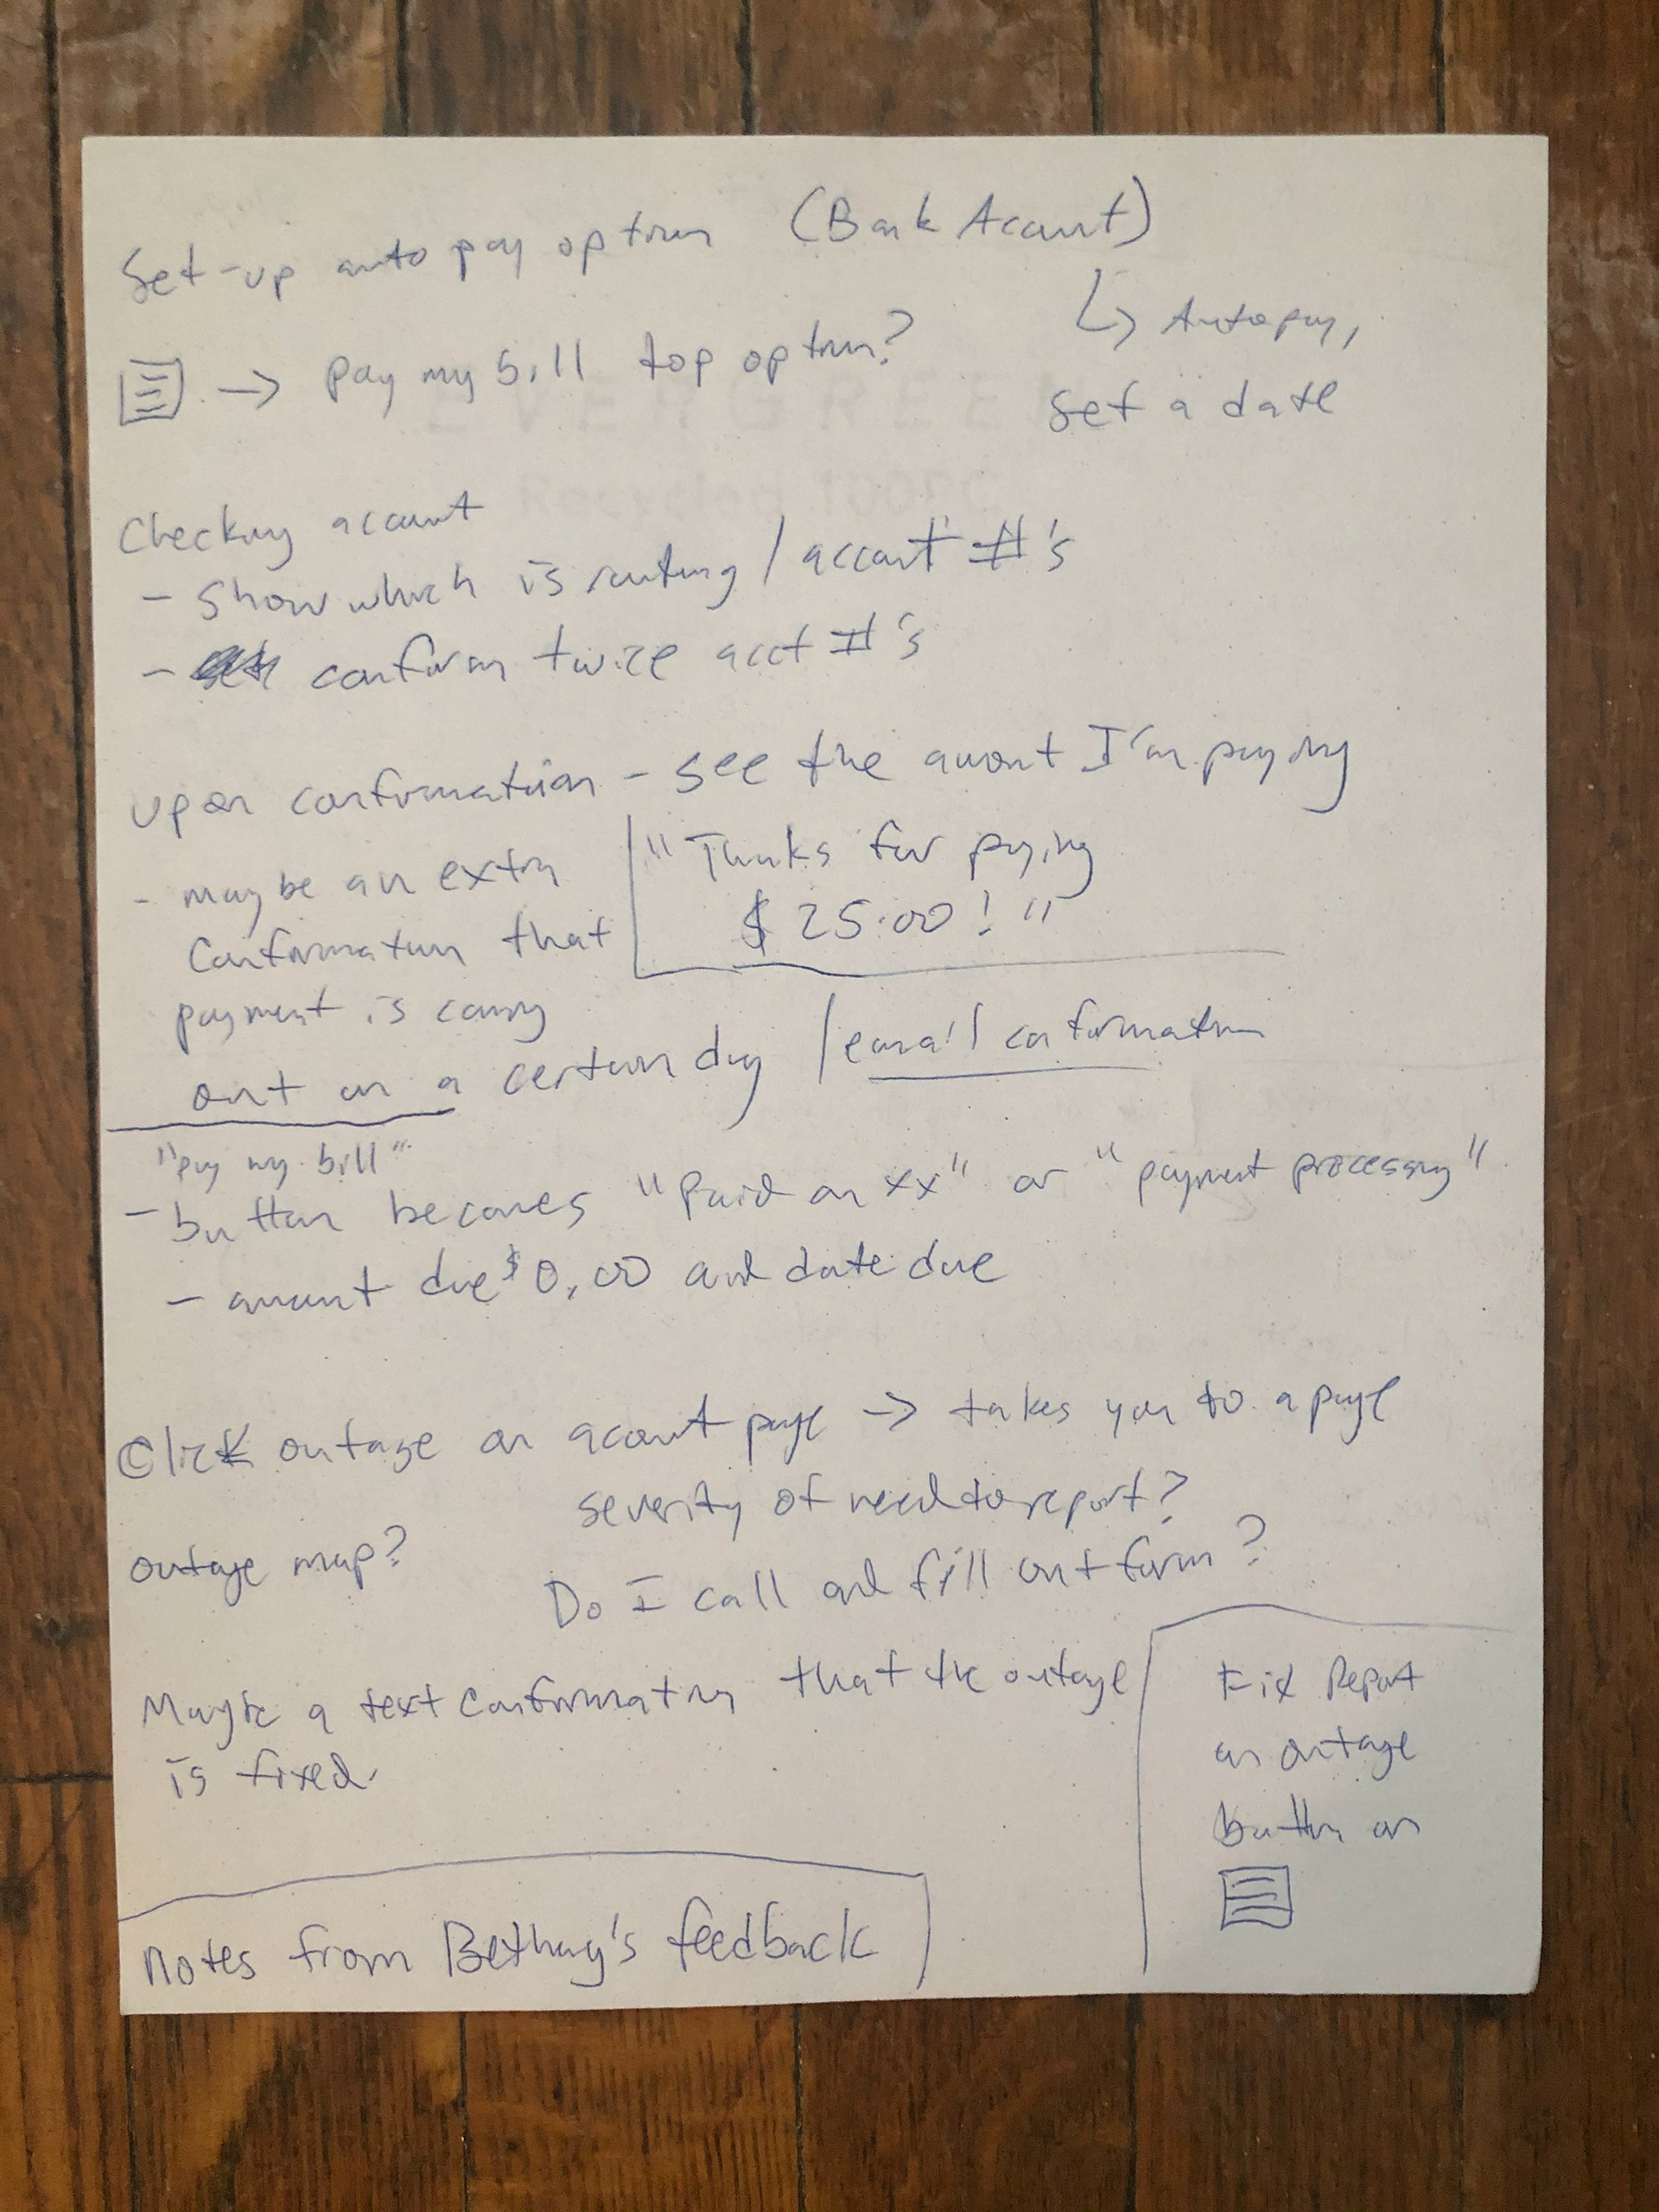 Set-up auto pay option (Bank Account)
↳ Autopay,
set a date
→ Pay my bill top option?
Checking account
- Show which is routing / account #'s
- confirm twice acct #'s
upon confirmation - see the amount I'm paying
"Thanks for paying
$25.00!"
- maybe an extra
confirmation that
payment is coming
out on a certain day / email confirmation
"Pay my bill"
- button becomes "Paid on xx" or "payment processing"
- amount due $0.00 and date due
Click outage on account page → takes you to a page
severity of need to report?
outage map?
Do I call and fill out form?
Maybe a text confirmation that the outage
is fixed.
Report
an outage
button on
Notes from Bethany's feedback